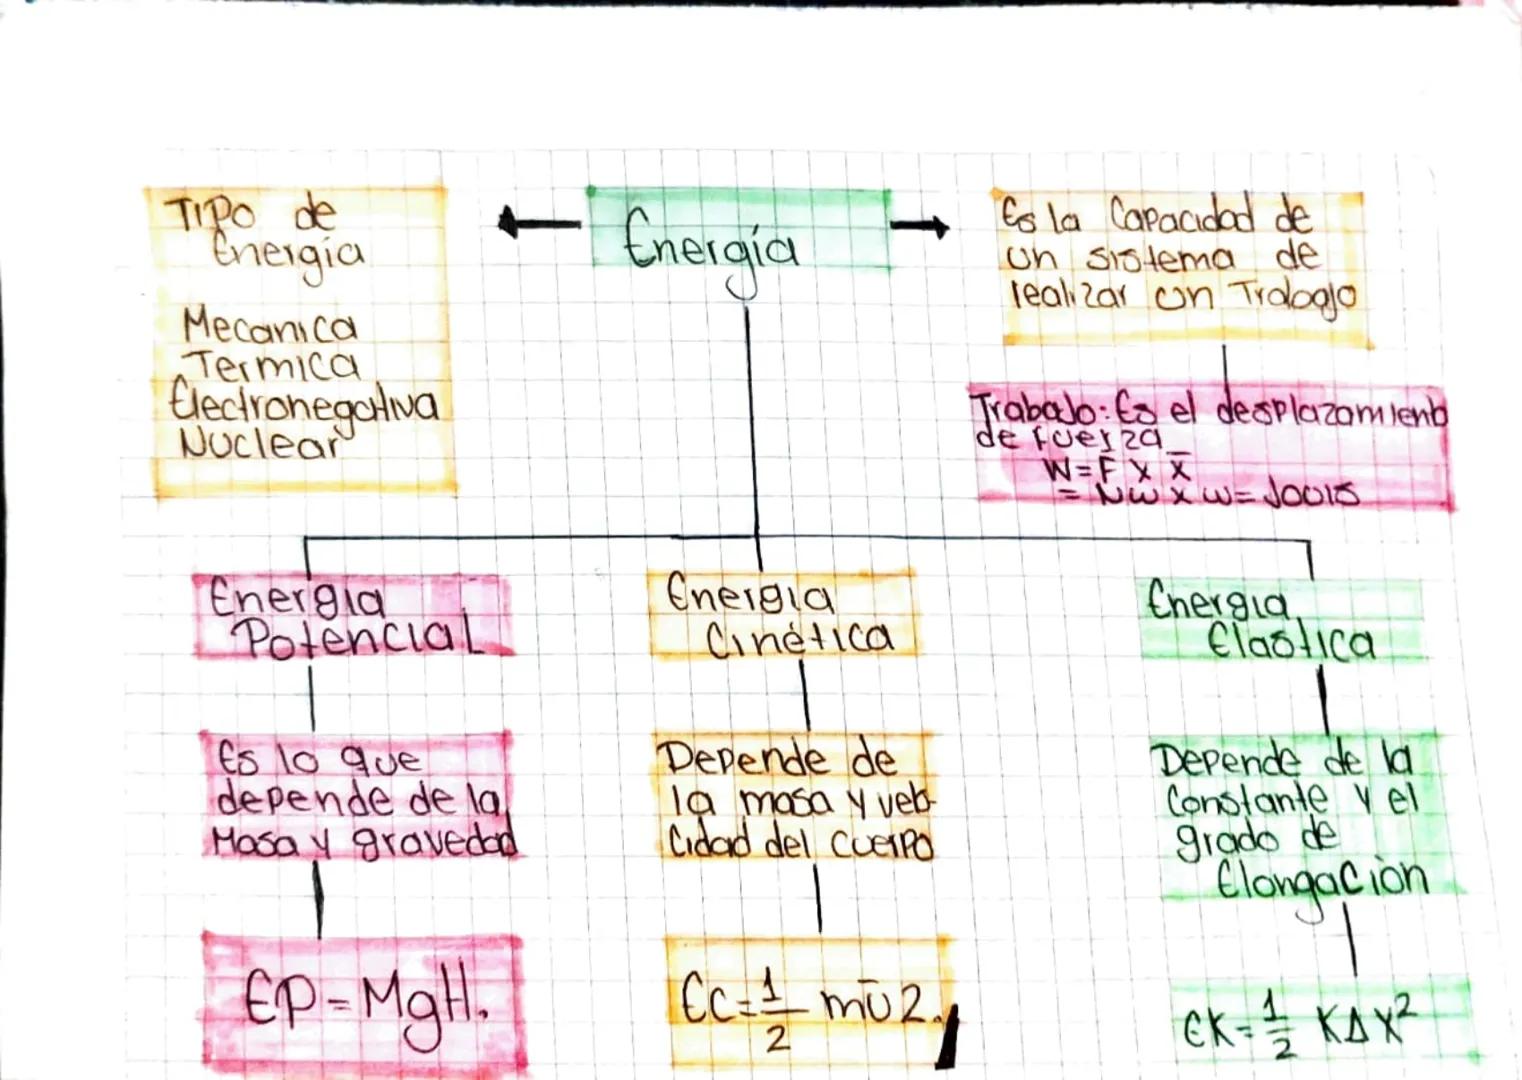 Energía
TIPO de
Energía
Mecanica
Termica
Electronegativa
Nuclear
Es la Capacidad de
un sistema de
realizar un Trabajo
Trabajo: Es el desplazamiento
de fuerza
W=F x x̄
= Nw x w= Jools
Energia
Potencial
Es lo que
depende de la
Masa y gravedad
EP=MgH.
Energia
Cinética
Depende de
la masa y velo-
cidad del cuerpo
EC=1/2 mv̄2.
Energia
Elastica
Depende de la
Constante y el
grado de
Elongaciòn
EK=1/2 KΔX²